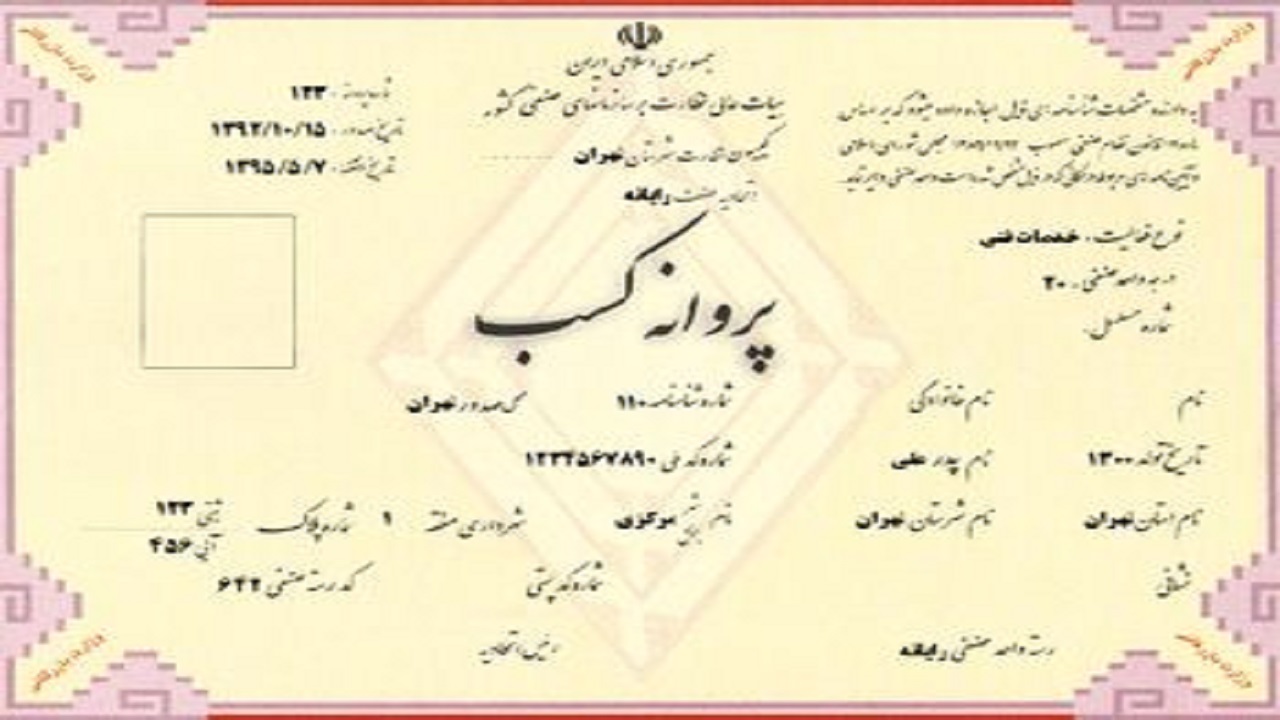 جمهوری اسلامی ایران
هیات عالی نظارت بر سازمانهای صنفی کشور
کمیسیون نظارت شهرستان تهران
اتحادیه صنف رایانه
شماره پروانه: ۱۲۳
تاریخ صدور: ۱۳۹۲/۱۰/۱۵
تاریخ انقضاء: ۱۳۹۵/۵/۷
به دارنده مشخصات شناسنامه ای ذیل اجازه داده میشود که بر اساس
قانون نظام صنفی مصوب مجلس شورای اسلامی
نوع فعالیت: خدمات فنی
درجه واحد صنفی: ۲۰
شماره مسلسل:
پروانه کسب
نام نام خانوادگی شماره شناسنامه ۱۱۰ محل صدور تهران
تاریخ تولد ۱۳۰۰ نام پدر علی شماره کد ملی ۱۲۳۴۵۶۷۸۹۰
نام استان تهران نام شهرستان تهران نام بخش مرکزی شهرداری منطقه ۱ شماره پلاک ثبتی ۱۲۳
آبی ۴۵۶
نشانی شماره کد پستی کد رسته صنفی ۶۴۲
رسته واحد صنفی رایانه رئیس اتحادیه